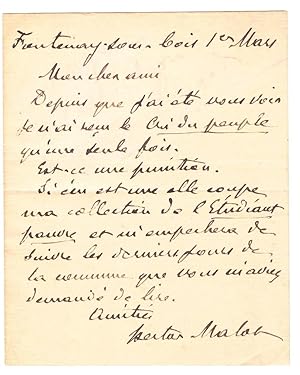 Fontenay-sous-Bois 1er Mars
Mon cher ami
Depuis que j'ai été vous voir
je n'ai reçu le Cri du peuple
qu'une seule fois.
Est-ce une punition.
Si c'en est une elle coupe
ma collection de l'Etudiant
pauvre et m'empechera de
suivre les derniers jours de
la commune que vous m'avez
demandé de lire.
Amitiés
Hector Malot